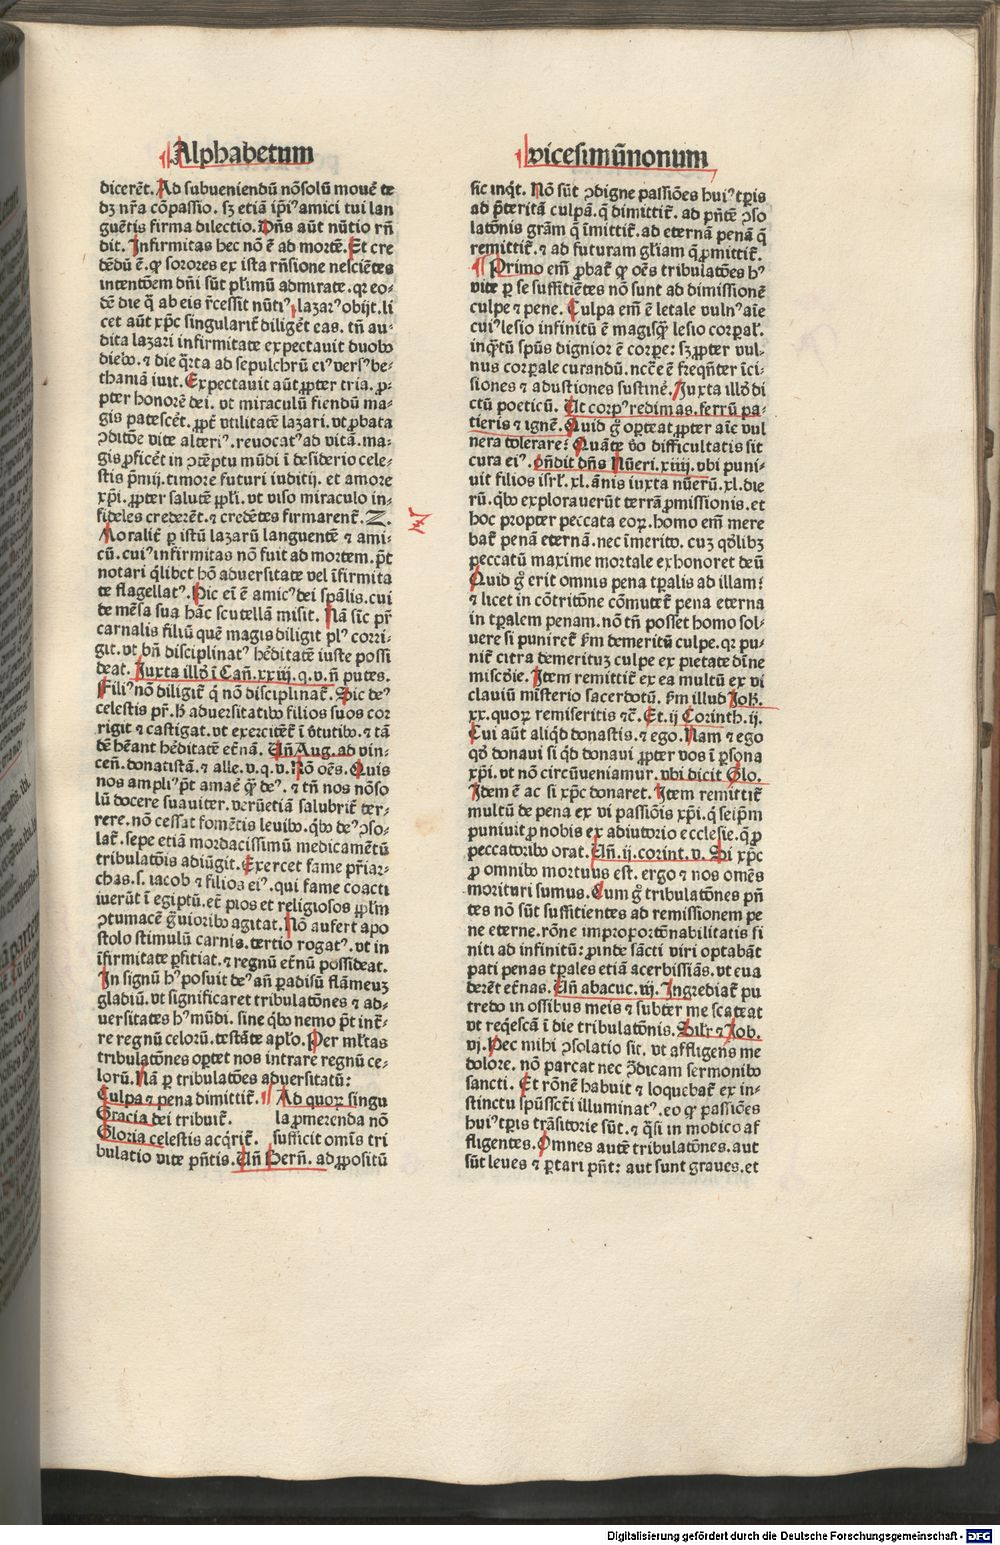 Alphabetum
dicerēt. Ad subueniendū nōsolū mouēt te
dꝫ nr̄a cōpassio. sꝫ etiā ip̄iꝰ amici tui lan
guētis firma dilectio. Dn̄s aūt nūtio rn̄
dit. Infirmitas hec nō ē ad mortē. Et cre
dēdū ē. ꝙ sorores ex ista rn̄sione nesciētes
intentōem dn̄i sūt pl'imū admirate. qꝛ eo⸗
dē die q̄ ab eis r̄cessit nūtiꝰ lazarꝰ obijt. li
cet aūt xp̄c singularit̄ diligēt eas. tn̄ au⸗
dita lazari infirmitate expectauit duobꝰ
diebꝰ. ⁊ die q̄rta ad sepulchrū eiꝰ versꝰ be⸗
thaniā iuit. Expectauit aūt ꝓpter tria. ꝓ⸗
pter honorē dei. vt miraculū fiendū ma⸗
gis patescēt. ꝓpt̄ vtilitatē lazari. vt ꝓbata
ꝯditōe vite alteriꝰ. reuocatꝰ ad vitā. ma⸗
gis ꝓficēt in ꝯtēptu mūdi ī desiderio cele⸗
stis p̄mij. timore futuri iuditij. et amore
xp̄i. ꝓpter salutē ꝓp̄li. vt viso miraculo in⸗
fideles crederēt. ⁊ credētes firmarent̄. Z.
Moralit̄ ꝑ istū lazarū languentē ⁊ ami⸗
cū. cuiꝰ infirmitas nō fuit ad mortem. p̄t
notari q̄libet hō aduersitate vel īfirmita
te flagellatꝰ. Hic eī ē amicꝰ dei sp̄alis. cui
de mēsa sua hāc scutellā misit. Nā sīc pr̄
carnalis filiū quē magis diligit plꝰ corri⸗
git. vt bn̄ disciplinatꝰ hēditatē iuste possi
deat. Juxta illd̄ ī Can̄. xxiij. q. v. n̄ putes.
Filiꝰ nō diligit̄ q̄ nō disciplinat̄. Sic deꝰ
celestis pr̄. h̄ aduersitatibꝰ filios suos cor
rigit ⁊ castigat. vt exercitēt̄ ī v̄tutibꝰ. ⁊ tā
dē hēant hēditatē et̄nā. Un̄ Aug. ad vin⸗
cen̄. donatistā. ⁊ alle. v. q. v. Nō oēs. Quis
nos ampliꝰ p̄t amaē q̄ deꝰ. ⁊ tn̄ nos nōso
lū docere suauiter. verūetiā salubrit̄ ter⸗
rere. nō cessat fomētis leuibꝰ. qb̄ꝰ deꝰ ꝯso⸗
lat̄. sepe etiā mordacissimū medicamētū
tribulatōis adiūgit. Exercet fame pr̄iar⸗
chas. s. iacob ⁊ filios eiꝰ. qui fame coacti
iuerūt ī egiptū. et̄ pios et religiosos ꝓp̄l'm
ꝯtumacē g̃uioribꝰ agitat. Nō aufert apo
stolo stimulū carnis. tertio rogatꝰ. vt in
īfirmitate ꝑfitiat. ⁊ regnū et̄nū possideat.
In signū hꝰ posuit deꝰ an̄ ꝑadisū flāmeuꝫ
gladiū. vt significaret tribulatōnes ⁊ ad⸗
uersitates hꝰ mūdi. sine qb̄ꝰ nemo p̄t int̄⸗
re regnū celorū. testāte apl'o. Per ml'tas
tribulatōnes oꝑtet nos intrare regnū ce⸗
lorū. Nā ꝑ tribulatōes aduersitatū:
Culpa ⁊ pena dimittit̄. ¶ Ad quoꝝ singu
Gracia dei tribuit̄. la ꝓmerenda nō
Gloria celestis acq̄rit̄. sufficit om̄is tri
bulatio vite pn̄tis. Un̄ Bern̄. ad ꝓpositū
Z
vicesimūnonum
sic inq̄t. Nō sūt ꝯdigne passiōes huiꝰ tꝑis
ad p̄teritā culpā. q̄ dimittit̄. ad pn̄tē ꝯso
latōnis grām q̄ īmittit̄. ad eternā penā q̄
remittit̄. ⁊ ad futuram gl'iam q̄ ꝓmittit̄.
¶ Primo em̄ ꝓbat̄ ꝙ oēs tribulatōes hꝰ
vite ꝑ se suffitiētes nō sunt ad dimissionē
culpe ⁊ pene. Culpa em̄ ē letale vulnꝰ aīe
cuiꝰ lesio infinitū ē magisq̄ꝫ lesio corꝑal'.
inq̄tū sp̄us dignior ē corꝑe: sꝫ ꝓpter vul⸗
nus corꝑale curandū. nccē ē freqn̄ter īci⸗
siones ⁊ adustiones sustinē. Juxta illd̄ di
ctū poeticū. Ut corpꝰ redimas. ferrū pa⸗
tieris ⁊ ignē. Quid g̊ oꝑteat ꝓpter aīe vul
nera tolerare: Quāte v̊o difficultatis sit
cura eiꝰ. on̄dit dn̄s Nūeri. xiiij. vbi puni⸗
uit filios isrl'. xl. ānis iuxta nūerū. xl. die
rū. qb̄ꝰ explorauerūt terrā ꝓmissionis. et
hoc propter peccata eoꝝ. homo em̄ mere
bat̄ penā eternā. nec īmerito. cuꝫ qd̄libꝫ
peccatū maxime mortale exhonoret deū
Quid g̊ erit omnis pena tꝑalis ad illam:
⁊ licet in cōtritōne cōmutet̄ pena eterna
in tꝑalem penam. nō tn̄ posset homo sol⸗
uere si puniret̄ ẜm demeritū culpe. qꝛ pu⸗
nit̄ citra demerituꝫ culpe ex pietate dīne
miscd̄ie. Item remittit̄ ex ea multū ex vi
clauiū mīsterio sacerdotū. ẜm illud Joh.
xx. quoꝝ remiseritis ⁊c̄. Et. ij Corinth. ij.
Cui aūt aliqd̄ donastis. ⁊ ego. Nam ⁊ ego
qd̄ donaui si qd̄ donaui ꝓpter vos ī ꝑsona
xp̄i. vt nō circūueniamur. vbi dicit Glo.
Idem ē ac si xp̄c donaret. Item remittit̄
multū de pena ex vi passiōis xp̄i. q̄ seip̄m
puniuit ꝓ nobis ex adiutorio ecclesie. q̄ ꝓ
peccatoribꝰ orat. Un̄. ij. corint. v. Si xp̄c
ꝓ omnibꝰ mortuus est. ergo ⁊ nos omēs
morituri sumus. Cum g̊ tribulatōnes pn̄
tes nō sūt suffitientes ad remissionem pe
ne eterne. rōne improportōnabilitatis fi
niti ad infinitū: ꝓinde sācti viri optabāt
pati penas tꝑales etiā acerbissiās. vt eua
derēt et̄nas. Un̄ abacuc. iij. Ingrediat̄ pu
tredo in ossibus meis ⁊ subter me scateat
vt reqēscā ī die tribulatōnis. Sil'r ⁊ Job.
vj. Hec mihi ꝯsolatio sit. vt affligens me
dolore. nō parcat nec ꝯ̄dicam sermonibꝰ
sancti. Et rōnē habuit ⁊ loquebat̄ ex in⸗
stinctu sp̄ūssct̄i illuminatꝰ. eo ꝙ passiōes
huiꝰ tꝑis trāsitorie sūt. ⁊ q̄si in modico af
fligentes. Omnes autē tribulatōnes. aut
sūt leues ⁊ ꝑtari pn̄t: aut sunt graues. et
Digitalisierung gefördert durch die Deutsche Forschungsgemeinschaft - DFG